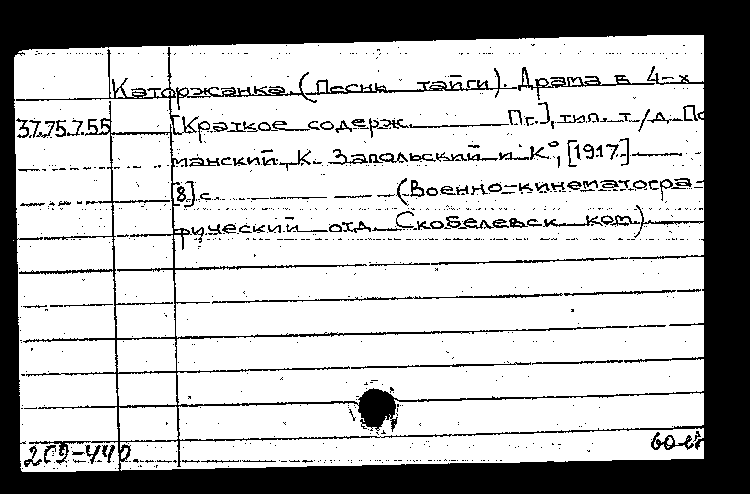 Каторжанка. (Песнь тайги). Драма в 4-х
37.75.7.55 [Краткое содерж. Пг.], тип. т/д. По
манский, К. Запольский и К°, [1917].
[8] с. (Военно-кинематогра-
фический отд. Скобелевск. ком).
209-440.